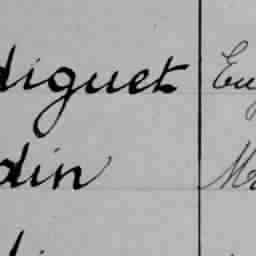 diguet Eug
din Ma